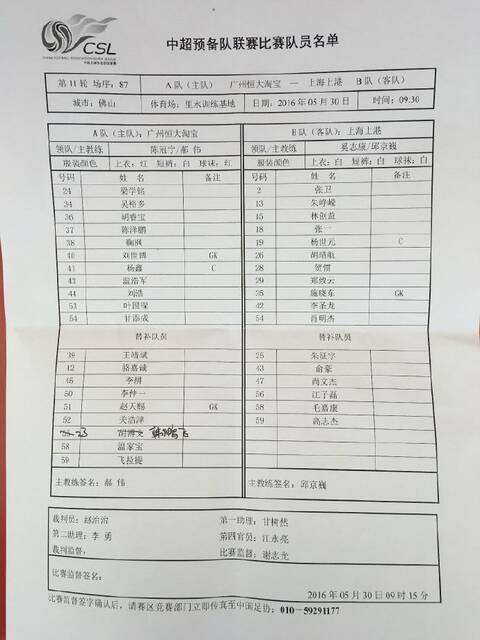 CSL
中超预备队联赛比赛队员名单
第 11 轮 场序: 87 A 队 (主队) 广州恒大淘宝 — 上海上港 B 队 (客队)
城市: 佛山 体育场: 里水训练基地 日期: 2016 年 05 月 30 日 时间: 09:30
A 队 (主队): 广州恒大淘宝 B 队 (客队): 上海上港
领队/主教练 陈冠宁/郝 伟 领队/主教练 奚志康/邱京巍
服装颜色 上衣: 红 短裤: 白 球袜: 红 服装颜色 上衣: 白 短裤: 白 球袜: 白
号码 姓 名 备注 号码 姓 名 备注
24 梁学铭 2 张卫
34 吴裕多 13 朱峥嵘
36 胡睿宝 15 林创益
37 陈泽鹏 18 张一
38 鞠枫 19 杨世元 C
40 刘世博 GK 26 胡靖航
41 杨鑫 C 28 贺惯
43 温浩军 29 郑致云
44 刘浩 35 施晓东 GK
53 叶国琛 42 李圣龙
54 甘添成 54 肖明杰
替补队员 替补队员
39 王靖斌 25 朱征宇
42 骆嘉诚 43 俞豪
45 李耕 47 尚文杰
50 李仲一 56 江子磊
51 赵天赐 GK 58 毛嘉康
52 关浩津 59 高志杰
23 胡博文
58 温家宝
59 飞拉提
主教练签名: 郝 伟 主教练签名: 邱京巍
裁判员: 赵治治 第一助理: 甘树然
第二助理: 李 勇 第四官员: 江永亮
裁判监督: 比赛监督: 谢志光
比赛监督签名:
2016 年 05 月 30 日 09 时 15 分
比赛监督签字确认后, 请赛区竞赛部门立即传真至中国足协: 010-59291177